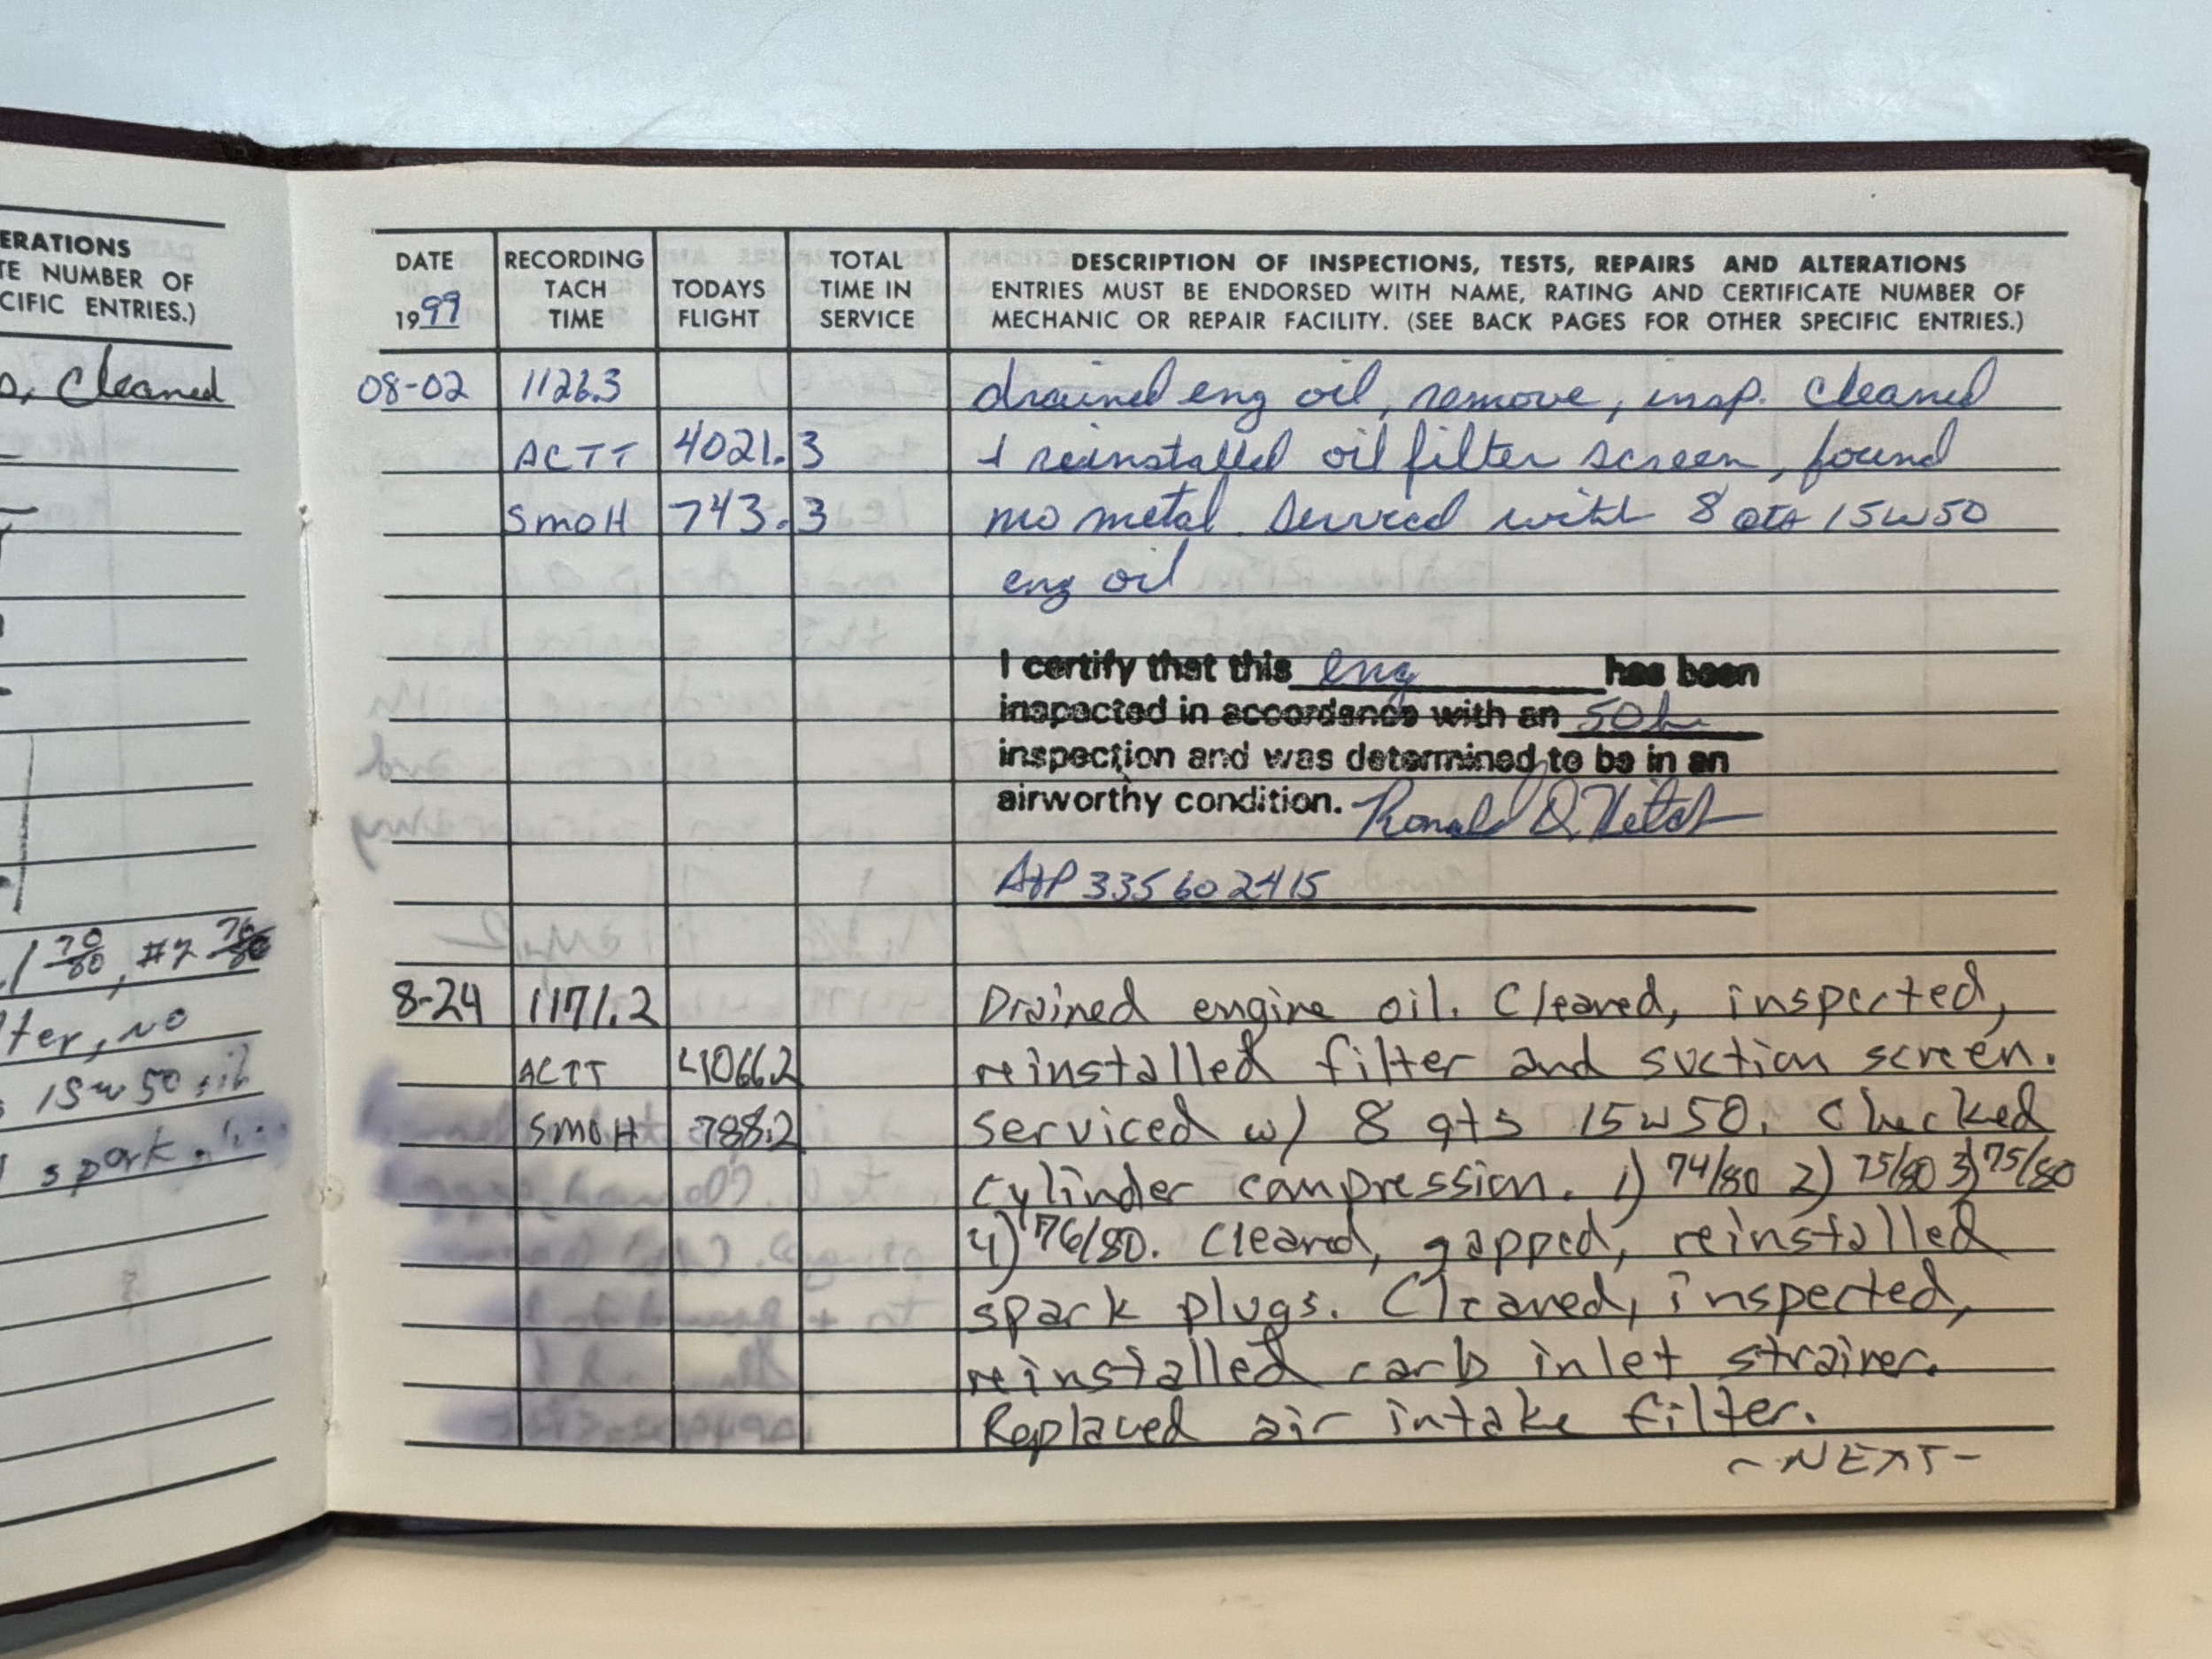 ERATIONS
TE NUMBER OF
CIFIC ENTRIES.)
Cleaned
1 70/80, #2 76/80
ter, no
15w50 oil
spark
DATE
1999
RECORDING
TACH
TIME
TODAYS
FLIGHT
TOTAL
TIME IN
SERVICE
DESCRIPTION OF INSPECTIONS, TESTS, REPAIRS AND ALTERATIONS
ENTRIES MUST BE ENDORSED WITH NAME, RATING AND CERTIFICATE NUMBER OF
MECHANIC OR REPAIR FACILITY. (SEE BACK PAGES FOR OTHER SPECIFIC ENTRIES.)
08-02 1126.3 drained eng oil, remove, insp. cleaned
ACTT 4021.3 + reinstalled oil filter screen, found
SMOH 743.3 no metal. Serviced with 8 qts 15w50
eng oil
I certify that this eng has been
inspected in accordance with an 50 hr
inspection and was determined to be in an
airworthy condition. Ronald D.
A+P 335602415
8-24 1171.2 Drained engine oil. Cleaned, inspected,
ACTT 4066.2 reinstalled filter and suction screen.
SMOH 788.2 serviced w/ 8 qts 15w50. Checked
cylinder compression. 1) 74/80 2) 75/80 3) 75/80
4) 76/80. Cleaned, gapped, reinstalled
spark plugs. Cleaned, inspected,
reinstalled carb inlet strainer.
Replaced air intake filter.
-NEXT-